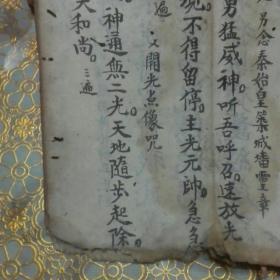 另念秦始皇築城墻靈章
男猛威神。听吾呼召。速放光
不得留停。主光元帥。急急
又開光点像咒
遍
神通無二光。天地随步起除
大和尚。三遍